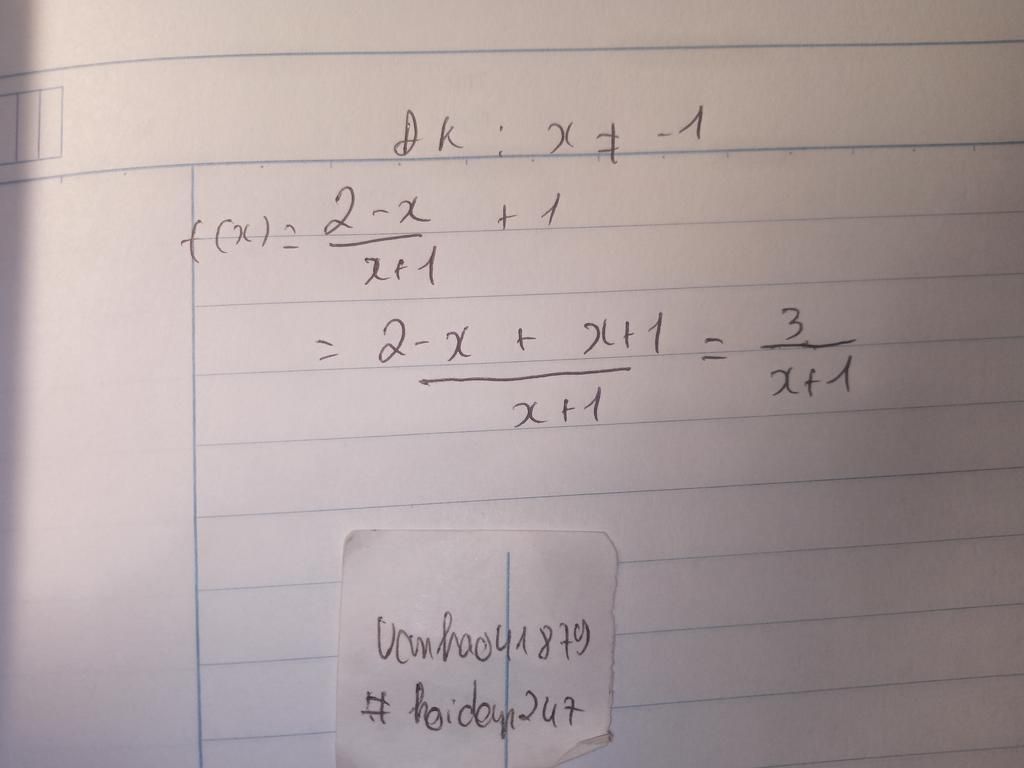 ĐK : x ≠ -1
f(x) = \frac{2-x}{x+1} + 1
= \frac{2-x + x+1}{x+1} = \frac{3}{x+1}
Vanhao41879
# hoidap247